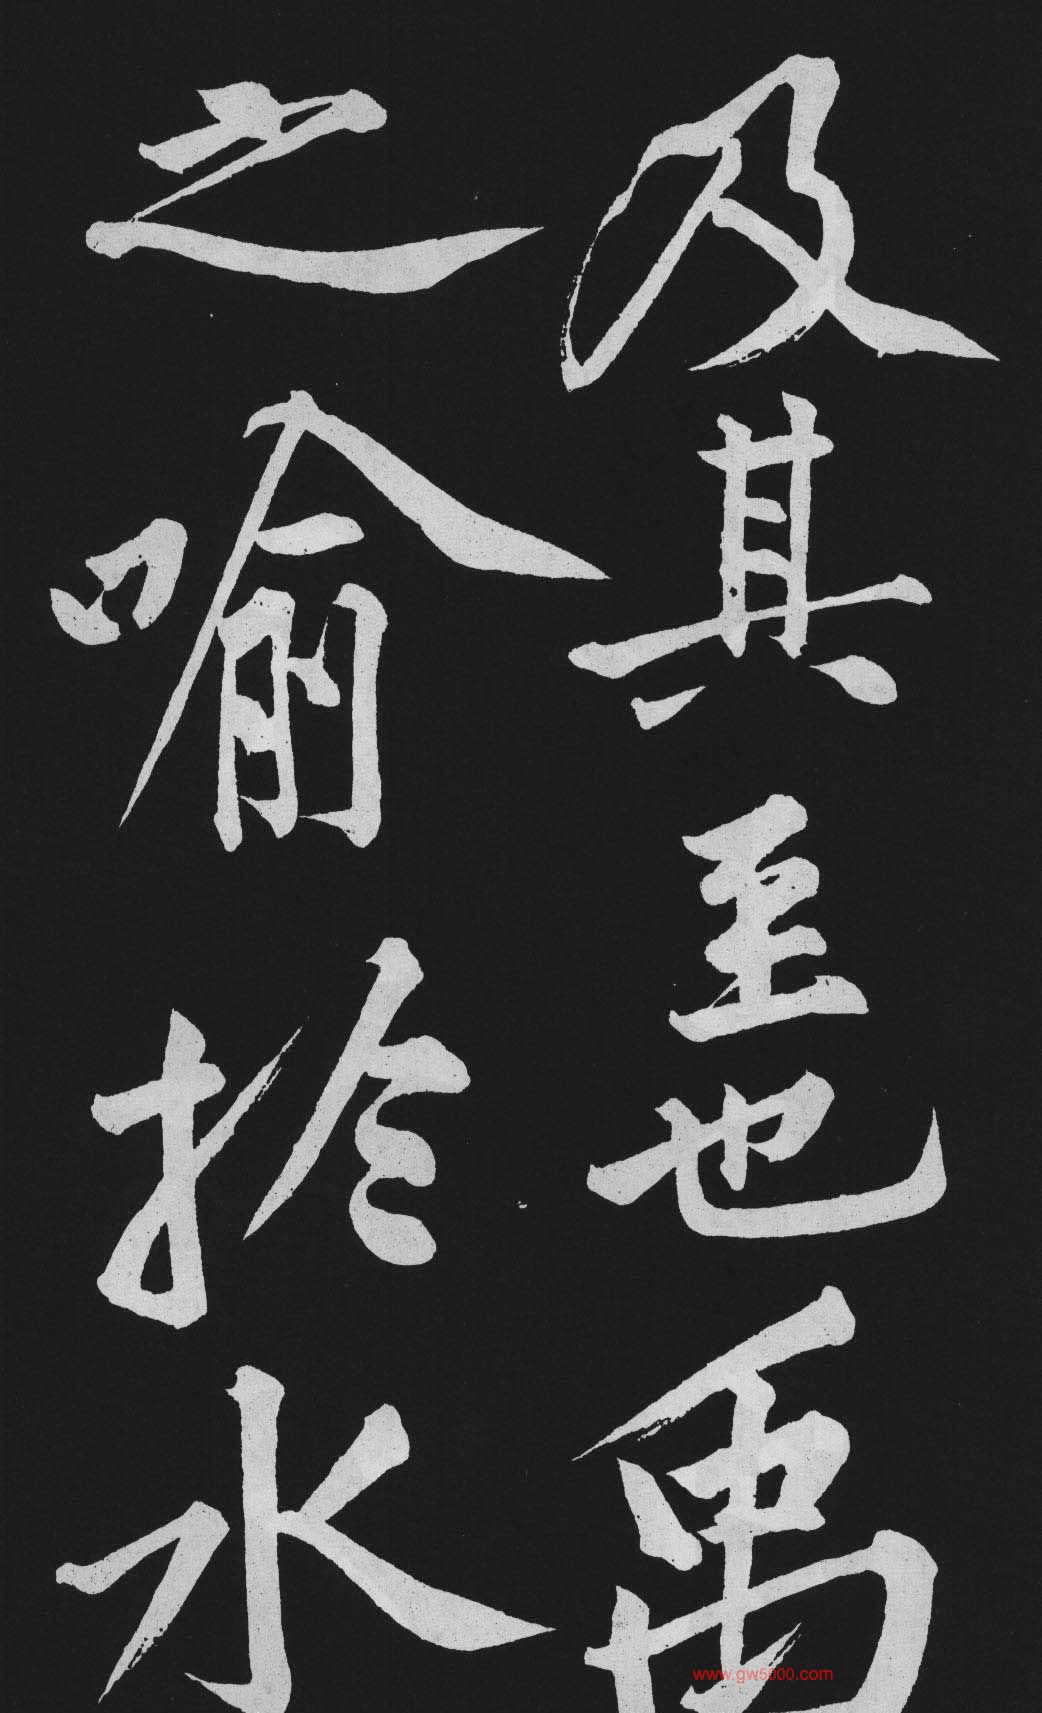 及其至也禹
之喻於水
www.gw5000.com